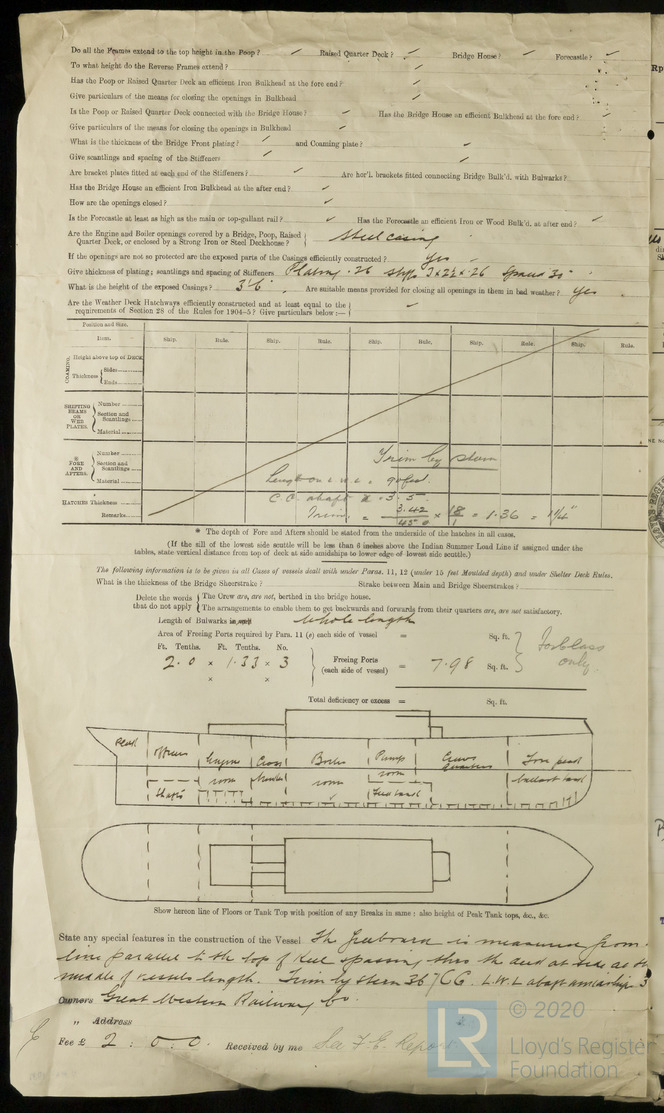 Do all the Frames extend to the top height in the Poop? ✓ Raised Quarter Deck? ✓ Bridge House? ✓ Forecastle? ✓
To what height do the Reverse Frames extend? ✓
Has the Poop or Raised Quarter Deck an efficient Iron Bulkhead at the fore end? ✓
Give particulars of the means for closing the openings in Bulkhead ✓
Is the Poop or Raised Quarter Deck connected with the Bridge House? ✓ Has the Bridge House an efficient Bulkhead at the fore end? ✓
Give particulars of the means for closing the openings in Bulkhead ✓
What is the thickness of the Bridge Front plating? ✓ and Coaming plate? ✓
Give scantlings and spacing of the Stiffeners ✓ ✓
Are bracket plates fitted at each end of the Stiffeners? ✓ Are hor'l. brackets fitted connecting Bridge Bulk'd. with Bulwarks?
Has the Bridge House an efficient Iron Bulkhead at the after end? ✓
How are the openings closed? ✓
Is the Forecastle at least as high as the main or top-gallant rail? ✓ Has the Forecastle an efficient Iron or Wood Bulk'd. at after end? ✓
Are the Engine and Boiler openings covered by a Bridge, Poop, Raised
Quarter Deck, or enclosed by a Strong Iron or Steel Deckhouse? Steel casing
If the openings are not so protected are the exposed parts of the Casings efficiently constructed? Yes
Give thickness of plating; scantlings and spacing of Stiffeners Plating ·26 3 × 2½ × ·26 spaced 30"
What is the height of the exposed Casings? 3'6" Are suitable means provided for closing all openings in them in bad weather? Yes
Are the Weather Deck Hatchways efficiently constructed and at least equal to the
requirements of Section 28 of the Rules for 1904-5? Give particulars below:— ✓
Position and Size.
Item. Ship. Rule. Ship. Rule. Ship. Rule. Ship. Rule. Ship. Rule.
COAMING. Height above top of DECK
Thickness Sides
Ends
SHIFTING BEAMS OR WEB PLATES. Number
Section and Scantlings
Material
* FORE AND AFTERS. Number
Section and Scantlings
Material
Trim by stern
Length on L.W.L. = 90 feet
HATCHES Thickness C.G. abaft = 3·5
Remarks Trim = 3.42/450 × 18/1 = 1.36 = 1¼"
* The depth of Fore and Afters should be stated from the underside of the hatches in all cases.
(If the sill of the lowest side scuttle will be less than 6 inches above the Indian Summer Load Line if assigned under the
tables, state vertical distance from top of deck at side amidships to lower edge of lowest side scuttle.)
The following information is to be given in all Cases of vessels dealt with under Paras. 11, 12 (under 15 feet Moulded depth) and under Shelter Deck Rules.
What is the thickness of the Bridge Sheerstrake? Strake between Main and Bridge Sheerstrakes?
Delete the words that do not apply The Crew are, are not, berthed in the bridge house.
The arrangements to enable them to get backwards and forwards from their quarters are, are not satisfactory.
Length of Bulwarks whole length
Area of Freeing Ports required by Para. 11 (e) each side of vessel = Sq. ft.
Ft. Tenths. Ft. Tenths. No.
2.0 × 1.33 × 3 Freeing Ports (each side of vessel) = 7.98 Sq. ft. For Class only.
× ×
Total deficiency or excess = Sq. ft.
Peak Officers Engine room Cross bunker Boiler room Pump room Crews Quarters Fore peak
Feed tank ballast tank
Show hereon line of Floors or Tank Top with position of any Breaks in same: also height of Peak Tank tops, &c., &c.
State any special features in the construction of the Vessel The freeboard is measured from
line parallel to the top of keel & passing thro the deck at side at the
middle of vessels length. Trim by Stern 36" CG. L.W.L abaft amidships 3
Owners Great Western Railway Co.
" Address
Fee £ 2 : 0 : 0. Received by me See F.E. Report
© 2020
LR
Lloyd's Register
Foundation